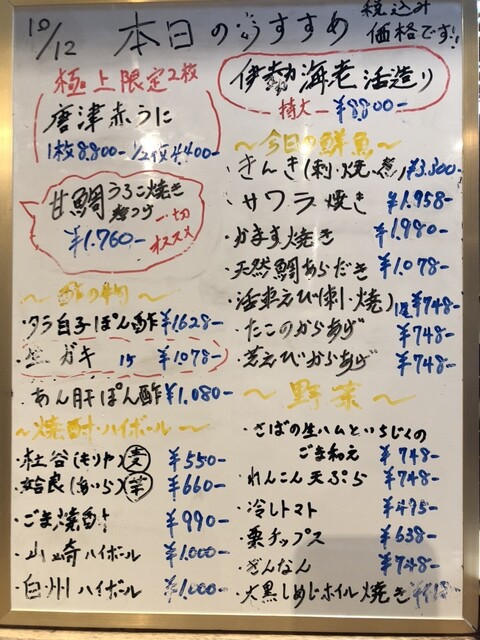 10/12 本日のおすすめ
税込み
価格です!!
極上限定2枚
唐津赤うに
1枚8.800- 1/2枚4.400-
甘鯛うろこ焼き
一切
¥1.760-
オススメ
~酢の物~
・タラ白子ぽん酢 ¥1628-
・生ガキ 1ケ ¥1078-
・あん肝ぽん酢 ¥1.080-
~焼酎・ハイボール~
・杜谷(もりや)麦 ¥550-
・姶良(あいら)芋 ¥660-
・ごま焼酎 ¥990-
・山崎ハイボール ¥1.000-
・白州ハイボール ¥1.000-
伊勢海老活造り
特大 ¥8.800-
~今日の鮮魚~
・きんき(刺・焼・煮) ¥3.300-
・サワラ焼き ¥1.958-
・かます焼き ¥1.980-
・天然鯛あらだき ¥1.078-
・活車えび(刺・焼) 1尾¥748-
・たこのからあげ ¥748-
・芝えびからあげ ¥748-
~野菜~
・さばの生ハムといちじくの
ごま和え ¥748-
・れんこん天ぷら ¥748-
・冷しトマト ¥495-
・栗チップス ¥638-
・ぎんなん ¥748-
・大黒しめじホイル焼き